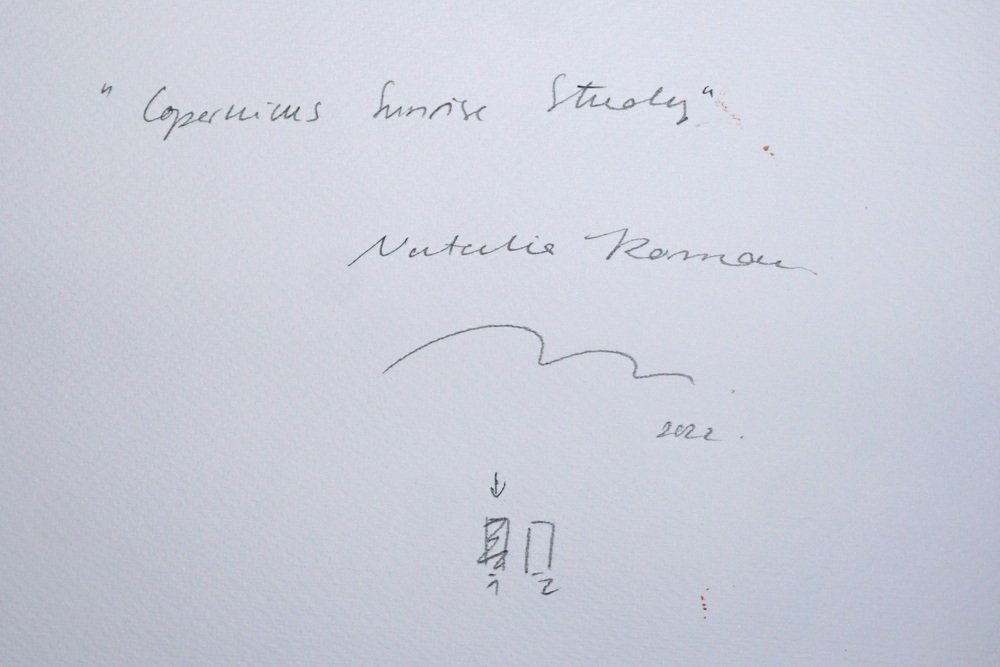 "Copernicus Sunrise Study"
Natalie Roman
2022.
1 2